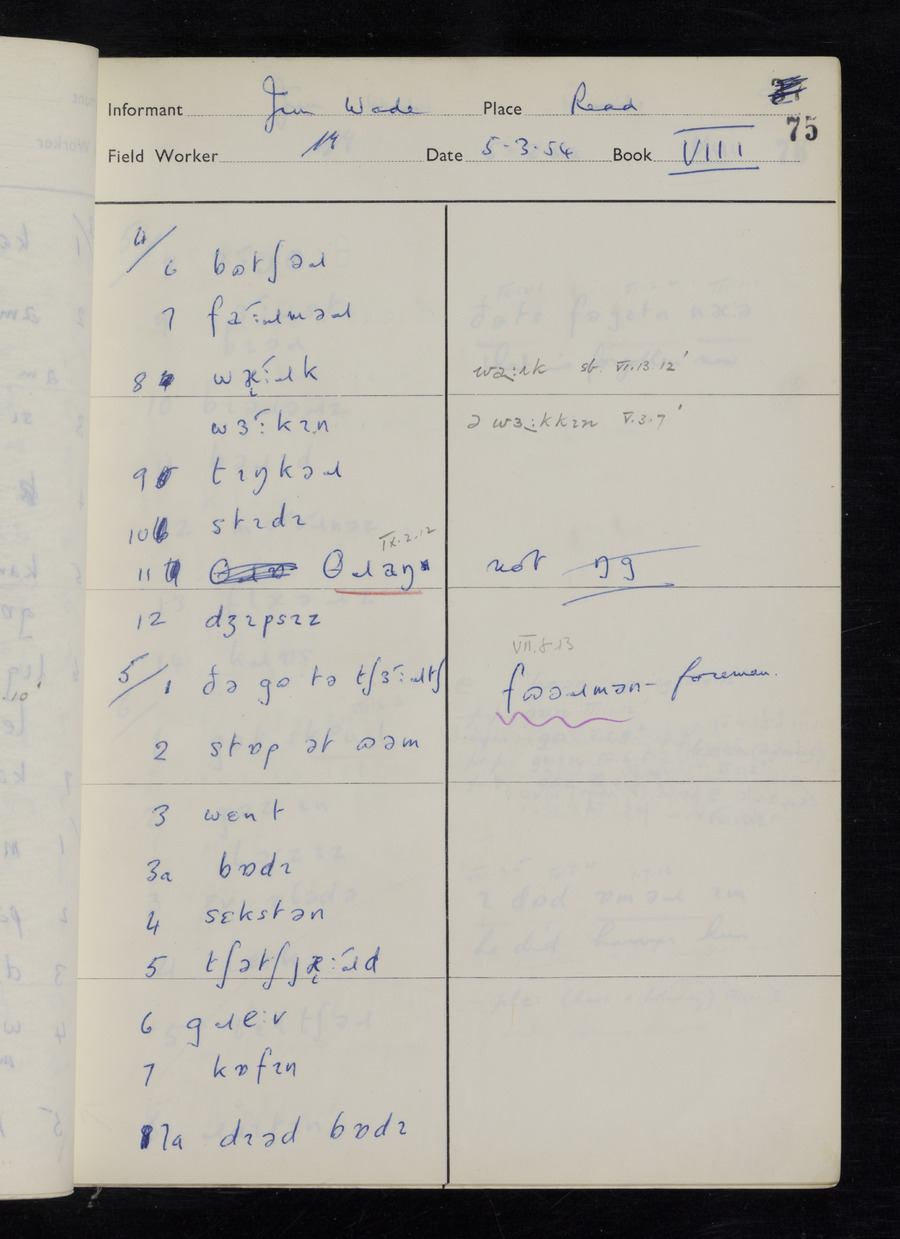 Informant Jim Wade Place Read
75
Field Worker Date 5.3.54 Book VIII
4/
6 bɒtʃəɹ
7 faːɹməɹ
8 wəːɹk
wɜːɹk sb. VI.13.12'
wɜːkɪn
ə wɜːkkɪn V.3.7'
9 tɪŋkəɹ
10 stɪdɪ
IX.2.12
11 θɹaŋ not ŋg
12 dʒɪpsɪz
VII.8.13
5/1 ðə gɒ tə tʃɜːɹtʃ
fɒəɹmən – foreman.
2 stɒp ət ɷəm
3 wɛnt
3a bɒdɪ
4 sɛkstən
5 tʃətʃjəːɹd
6 gɹeːv
7 kɒfɪn
7a dɪəd bɒdɪ